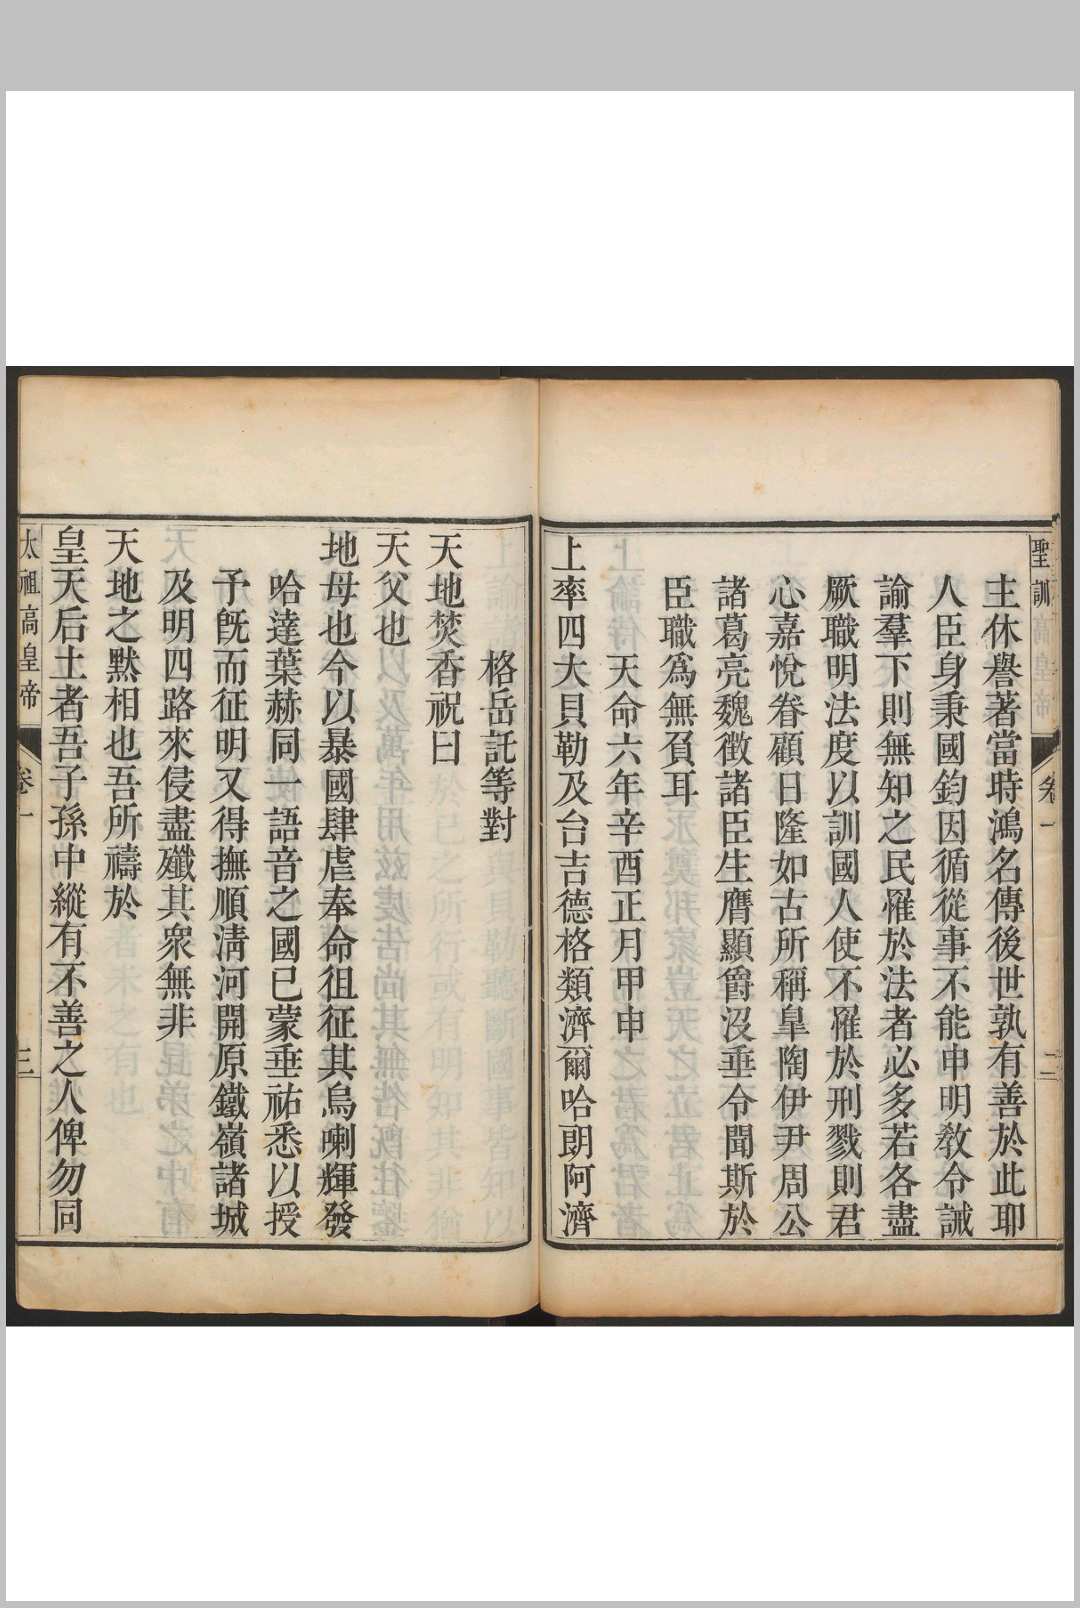 聖訓
卷一
二
主休譽著當時鴻名傳後世孰有善於此耶
人臣身秉國鈞因循從事不能申明敎令誡
諭羣下則無知之民罹於法者必多若各盡
厥職明法度以訓國人使不罹於刑戮則君
心嘉悅眷顧日隆如古所稱皐陶伊尹周公
諸葛亮魏徵諸臣生膺顯爵沒垂令聞斯於
臣職爲無負耳
天命六年辛酉正月甲申
上率四大貝勒及台吉德格類濟爾哈朗阿濟
格岳託等對
天地焚香祝曰
天父也
地母也今以暴國肆虐奉命徂征其烏喇輝發
哈達葉赫同一語音之國已蒙垂祐悉以授
予旣而征明又得撫順淸河開原鐵嶺諸城
及明四路來侵盡殲其衆無非
天地之默相也吾所禱於
皇天后土者吾子孫中縱有不善之人俾勿同
太祖高皇帝
卷一
三